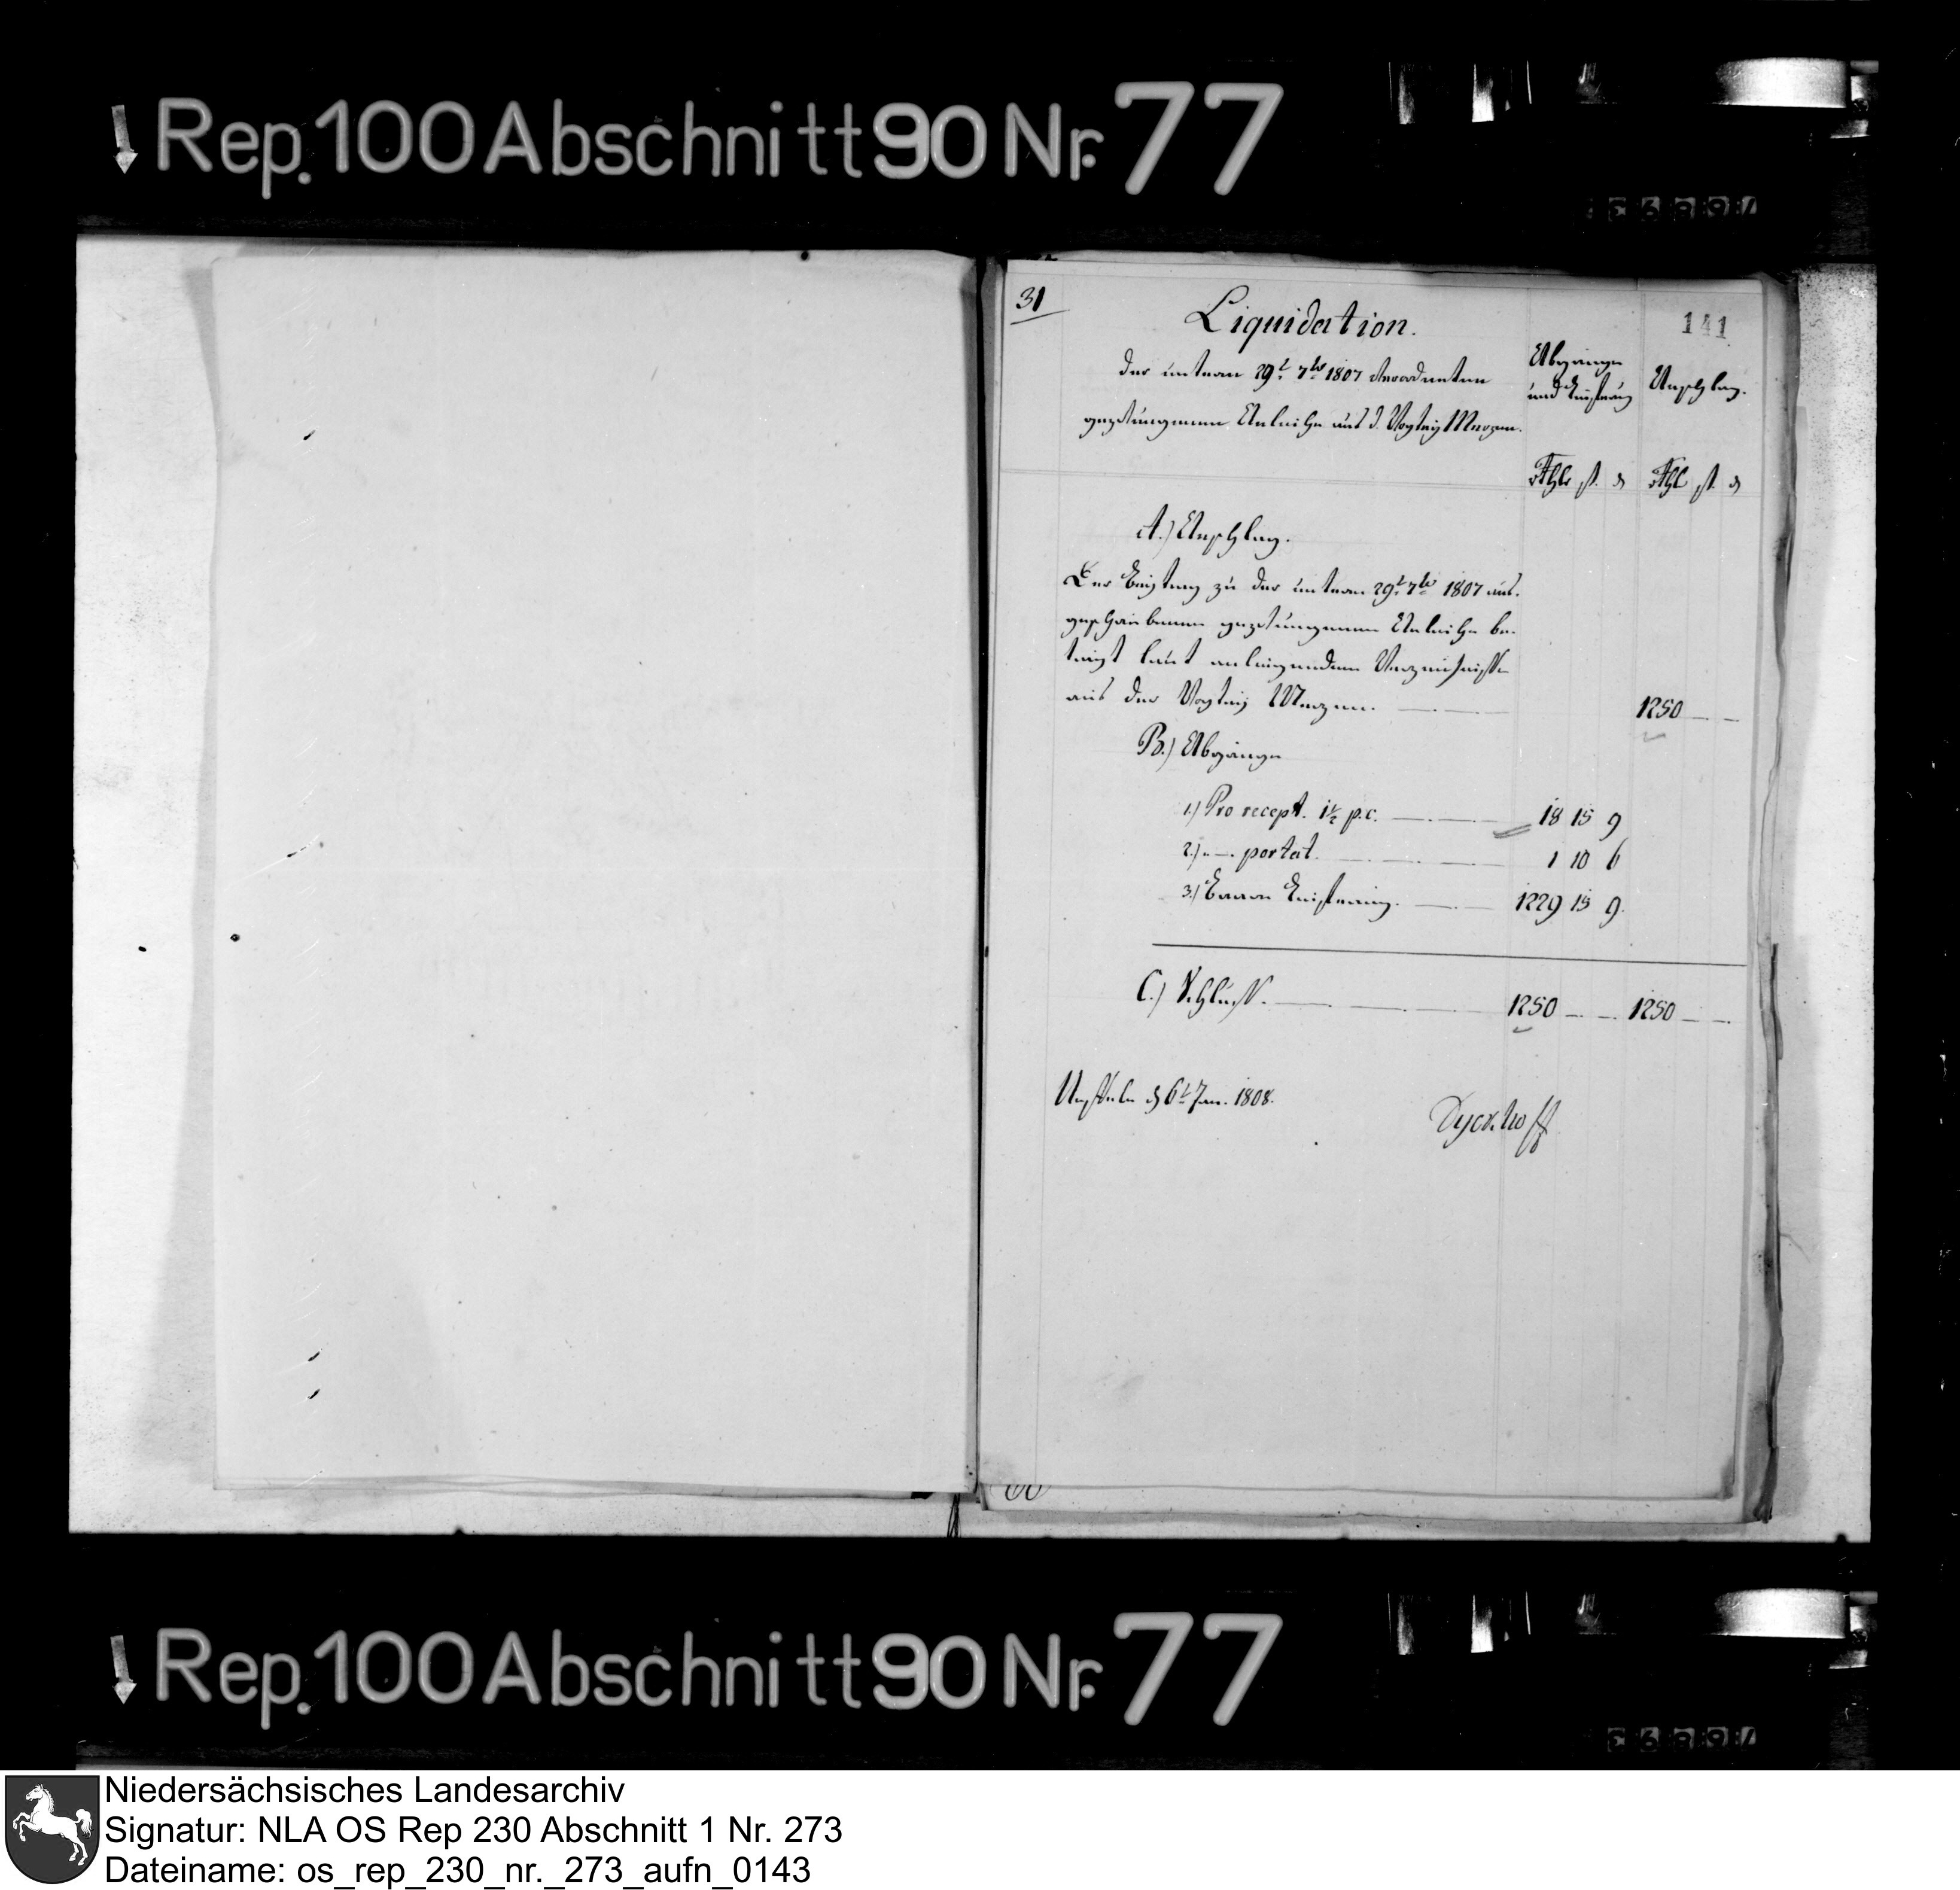 Rep. 100 Abschnitt 90 Nr. 77
31
141
Liquidation.
der unterm 29t. 7br 1807 verordneten
gezwungenen Anleihe aus d. Vogtey Merzen.
Abgänge
und Lieferung
Anschlag.
Rthlr ß. d
Rthl ß. d
A.) Anschlag.
Der Beytrag zu der unterm 29t. 7br 1807 aus-
geschriebenen gezwungenen Anleihe be-
trägt laut anliegendem Verzeichnisse
aus der Vogtey Merzen. 1250 — —
B.) Abgänge
1.) Pro recept. 1½ p.c. 18 15 9
2.) — portat. 1 10 6
3.) Baare Lieferung. 1229 15 9.
C.) Schluß. 1250 — — 1250 — —
d 6t Jan. 1808.
Dyckhoff
Rep. 100 Abschnitt 90 Nr. 77
Niedersächsisches Landesarchiv
Signatur: NLA OS Rep 230 Abschnitt 1 Nr. 273
Dateiname: os_rep_230_nr._273_aufn_0143